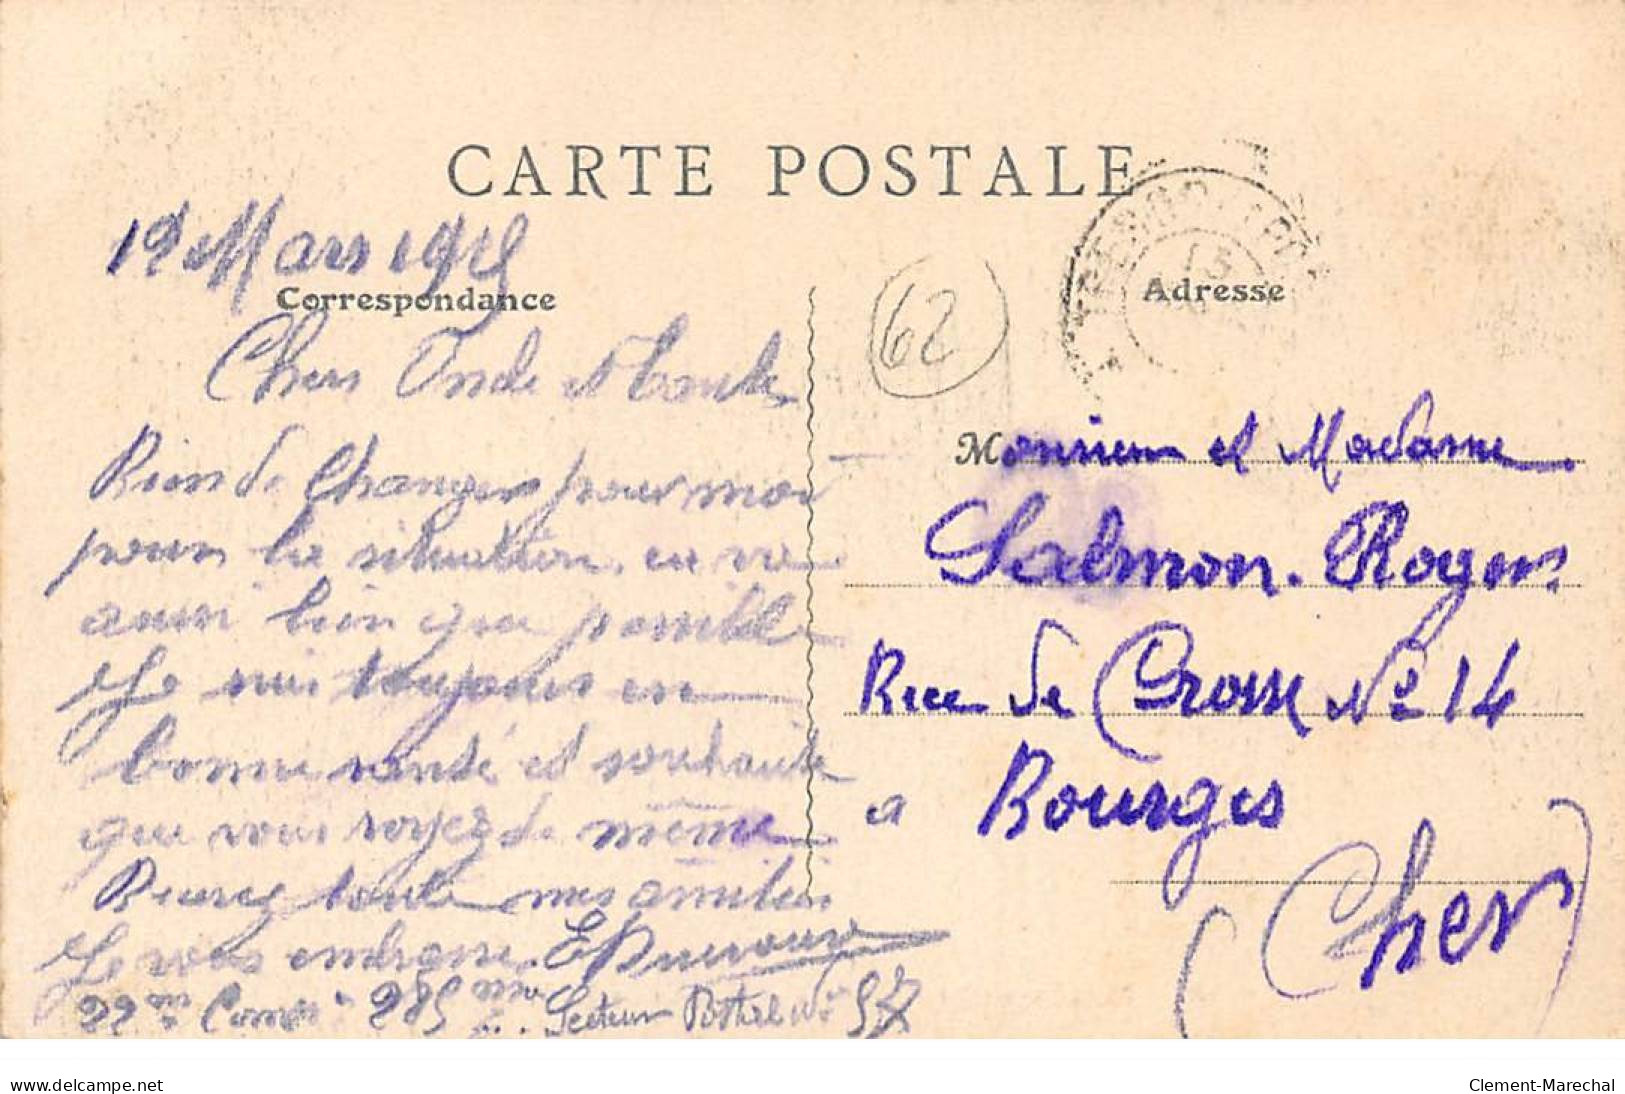 CARTE POSTALE
12 Mars 1915
Correspondance
Adresse
62
Chers Oncle et Tante
Rien de Changer pour moi
pour la situation en va
aussi bien que possible
Je suis toujours en
bonne santé et souhaite
que vous soyez de même
Recevez toute mes amitiés
Je vous embrasse.
22ème Comp 285 Secteur Postal No
Monsieur et Madame
Salmon. Roger
Rue de No 14
a Bourges
(Cher)
delcampe.net
Clement-Marechal